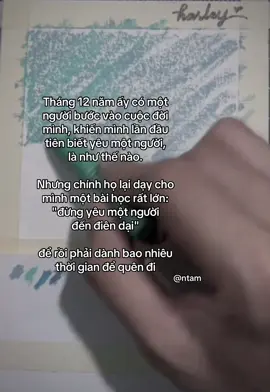 harley
Tháng 12 năm ấy có một
người bước vào cuộc đời
mình, khiến mình lần đầu
tiên biết yêu một người,
là như thế nào.
Nhưng chính họ lại dạy cho
mình một bài học rất lớn:
"đừng yêu một người
đến điên dại"
để rồi phải dành bao nhiêu
thời gian để quên đi
@ntam